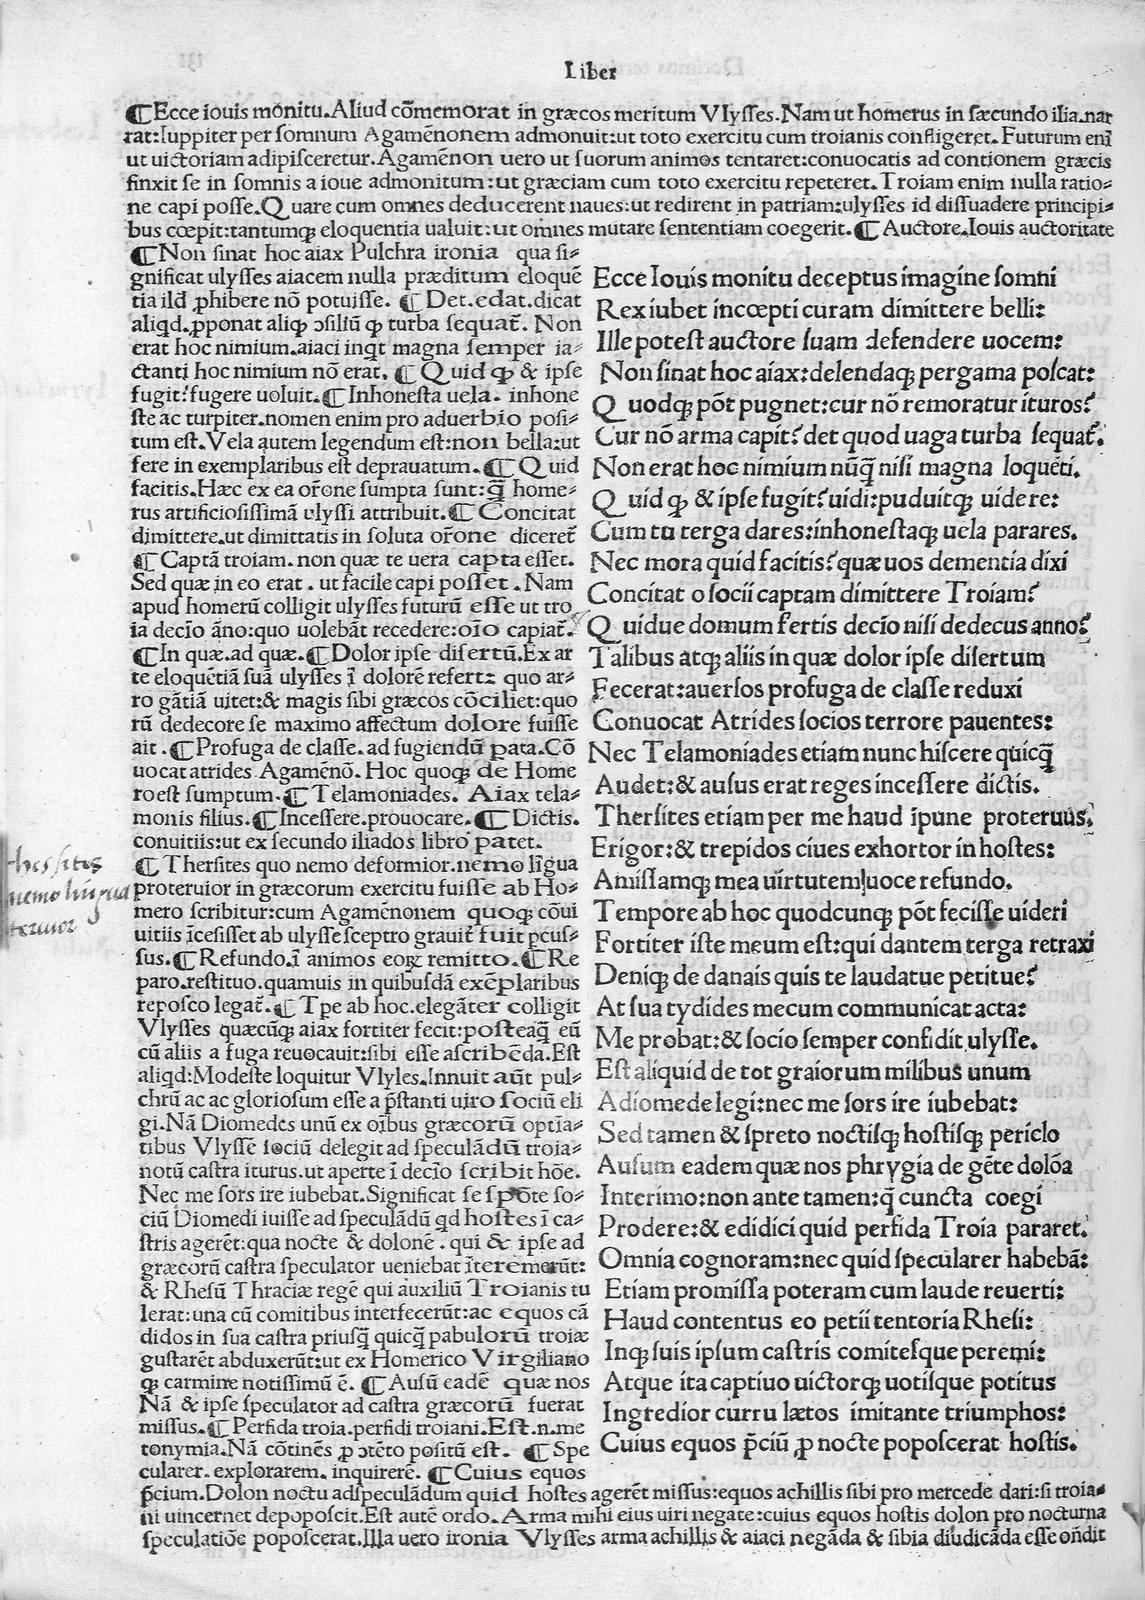 Liber
¶Ecce iouis monitu.Aliud cōmemorat in græcos meritum Vlysses.Nam ut homerus in sæcundo ilia.nar
rat:Iuppiter per somnum Agamēnonem admonuit:ut toto exercitu cum troianis confligeret.Futurum enī
ut uictoriam adipisceretur.Agamēnon uero ut suorum animos tentaret:conuocatis ad contionem græcis
finxit se in somnis a ioue admonitum:ut græciam cum toto exercitu repeteret.Troiam enim nulla ratio-
ne capi posse.Quare cum omnes deducerent naues:ut redirent in patriam:ulysses id dissuadere principi-
bus cœpit:tantumq; eloquentia ualuit:ut omnes mutare sententiam coegerit.¶Auctore.Iouis auctoritate
¶Non sinat hoc aiax Pulchra ironia qua si-
gnificat ulysses aiacem nulla præditum eloquē
tia ild ꝓhibere nō potuisse. ¶Det.edat.dicat
aliqd.ꝓponat aliq; ↄsiliū q; turba sequat̄. Non
erat hoc nimium.aiaci inqt magna semper ia-
ctanti hoc nimium nō erat. ¶Quid q; & ipse
fugit:fugere uoluit.¶Inhonesta uela. inhone
ste ac turpiter.nomen enim pro aduerbio posi-
tum est.Vela autem legendum est:non bella:ut
fere in exemplaribus est deprauatum.¶Quid
facitis.Hæc ex ea or̄one sumpta sunt:q̄ home-
rus artificiosissimā ulyssi attribuit.¶Concitat
dimittere.ut dimittatis in soluta or̄one diceret̄
¶Captā troiam.non quæ te uera capta esset.
Sed quæ in eo erat . ut facile capi posset . Nam
apud homerū colligit ulysses futurū esse ut tro
ia decīo āno:quo uolebāt recedere:oīo capiat̄.
¶In quæ.ad quæ.¶Dolor ipse disertū.Ex ar
te eloquētiā suā ulysses ī dolorē refert: quo ar-
ro gātiā uitet:& magis sibi græcos cōciliet:quo
rū dedecore se maximo affectum dolore fuisse
ait .¶Profuga de classe.ad fugiendū pata.Cō
uocat atrides Agamēnō. Hoc quoq; de Home
ro est sumptum.¶Telamoniades. Aiax tela-
monis filius.¶Incessere.prouocare.¶Dictis.
conuitiis:ut ex secundo iliados libro patet.
¶Thersites quo nemo deformior.nemo līgua
proteruior in græcorum exercitu fuisse ab Ho-
mero scribitur:cum Agamēnonem quoq; cōui
uitiis īcesisset ab ulysse sceptro grauit̄ fuit pcus-
sus.¶Refundo.ī animos eoꝝ remitto.¶Re
paro.restituo.quamuis in quibusdā exēplaribus
reposco legat̄.¶Tpe ab hoc.elegāter colligit
Vlysses quæcūq; aiax fortiter fecit:posteaq̄ eū
cū aliis a fuga reuocauit:sibi esse ascribēda.Est
aliqd:Modeste loquitur Vlyses.Innuit aūt pul-
chrū ac ac gloriosum esse a p̄stanti uiro sociū eli
gi.Nā Diomedes unū ex oībus græcorū optīa-
tibus Vlyssē sociū delegit ad speculādū troia-
notū castra iturus.ut aperte ī decīo scribit hōe.
Nec me sors ire iubebat.Significat se spōte so-
ciū Diomedi iuisse ad speculādū qd hostes ī ca-
stris agerēt:qua nocte & dolonē . qui & ipse ad
græcorū castra speculator ueniebat īteremerūt:
& Rhesū Thraciæ regē qui auxiliū Troianis tu
lerat:una cū comitibus interfecerūt:ac equos cā
didos in sua castra priusq̄ quicq̄ pabulorū troiæ
gustarēt abduxerūt:ut ex Homerico Virgiliano
q; carmine notissimū ē. ¶Ausū eadē quæ nos
Nā & ipse speculator ad castra græcorū fuerat
missus.¶Perfida troia.perfidi troiani.Est.n.me
tonymia.Nā cōtinēs p ↄtēto positū est. ¶Spe
cularer. explorarem. inquirerē. ¶Cuius equos
Ecce Iouis monitu deceptus imagine somni
Rex iubet incœpti curam dimittere belli:
Ille potest auctore suam defendere uocem:
Non sinat hoc aiax:delendaq; pergama poscat:
Quodq; pōt pugnet:cur nō remoratur ituros?
Cur nō arma capit?det quod uaga turba sequat̄.
Non erat hoc nimium nūq̄ nisi magna loquēti.
Quid q; & ipse fugit?uidi:puduitq; uidere:
Cum tu terga dares:inhonestaq; uela parares.
Nec mora quid facitis?quæ uos dementia dixi
Concitat o socii captam dimittere Troiam?
Quidue domum fertis decīo nisi dedecus anno?
Talibus atq; aliis in quæ dolor ipse disertum
Fecerat:auersos profuga de classe reduxi
Conuocat Atrides socios terrore pauentes:
Nec Telamoniades etiam nunc hiscere quicq̄
Audet:& ausus erat reges incessere dictis.
Thersites etiam per me haud īpune proteruus.
Erigor:& trepidos ciues exhortor in hostes:
Amissamq; mea uirtutem uoce refundo.
Tempore ab hoc quodcunq; pōt fecisse uideri
Fortiter iste meum est:qui dantem terga retraxi
Deniq; de danais quis te laudatue petitue?
At sua tydides mecum communicat acta:
Me probat:& socio semper confidit ulysse.
Est aliquid de tot graiorum milibus unum
A diomede legi:nec me sors ire iubebat:
Sed tamen & spreto noctisq; hostisq; periclo
Ausum eadem quæ nos phrygia de gēte dolōa
Interimo:non ante tamen:q̄ cuncta coegi
Prodere:& edidici quid perfida Troia pararet.
Omnia cognoram:nec quid specularer habebā:
Etiam promissa poteram cum laude reuerti:
Haud contentus eo petii tentoria Rhesi:
Inq; suis ipsum castris comitesque peremi:
Atque ita captiuo uictorq; uotisque potitus
Ingredior curru lætos imitante triumphos:
Cuius equos p̄ciū ꝓ nocte poposcerat hostis.
p̄cium.Dolon noctu adspeculādum quid hostes agerēt missus:equos achillis sibi pro mercede dari:si troia-
ni uincernet depoposcit.Est autē ordo.Arma mihi eius uiri negate:cuius equos hostis dolon pro nocturna
speculatiōe poposcerat.Illa uero ironia Vlysses arma achillis & aiaci negāda & sibia diudicāda esse on̄dit
thersites
nemo lingua
teruior